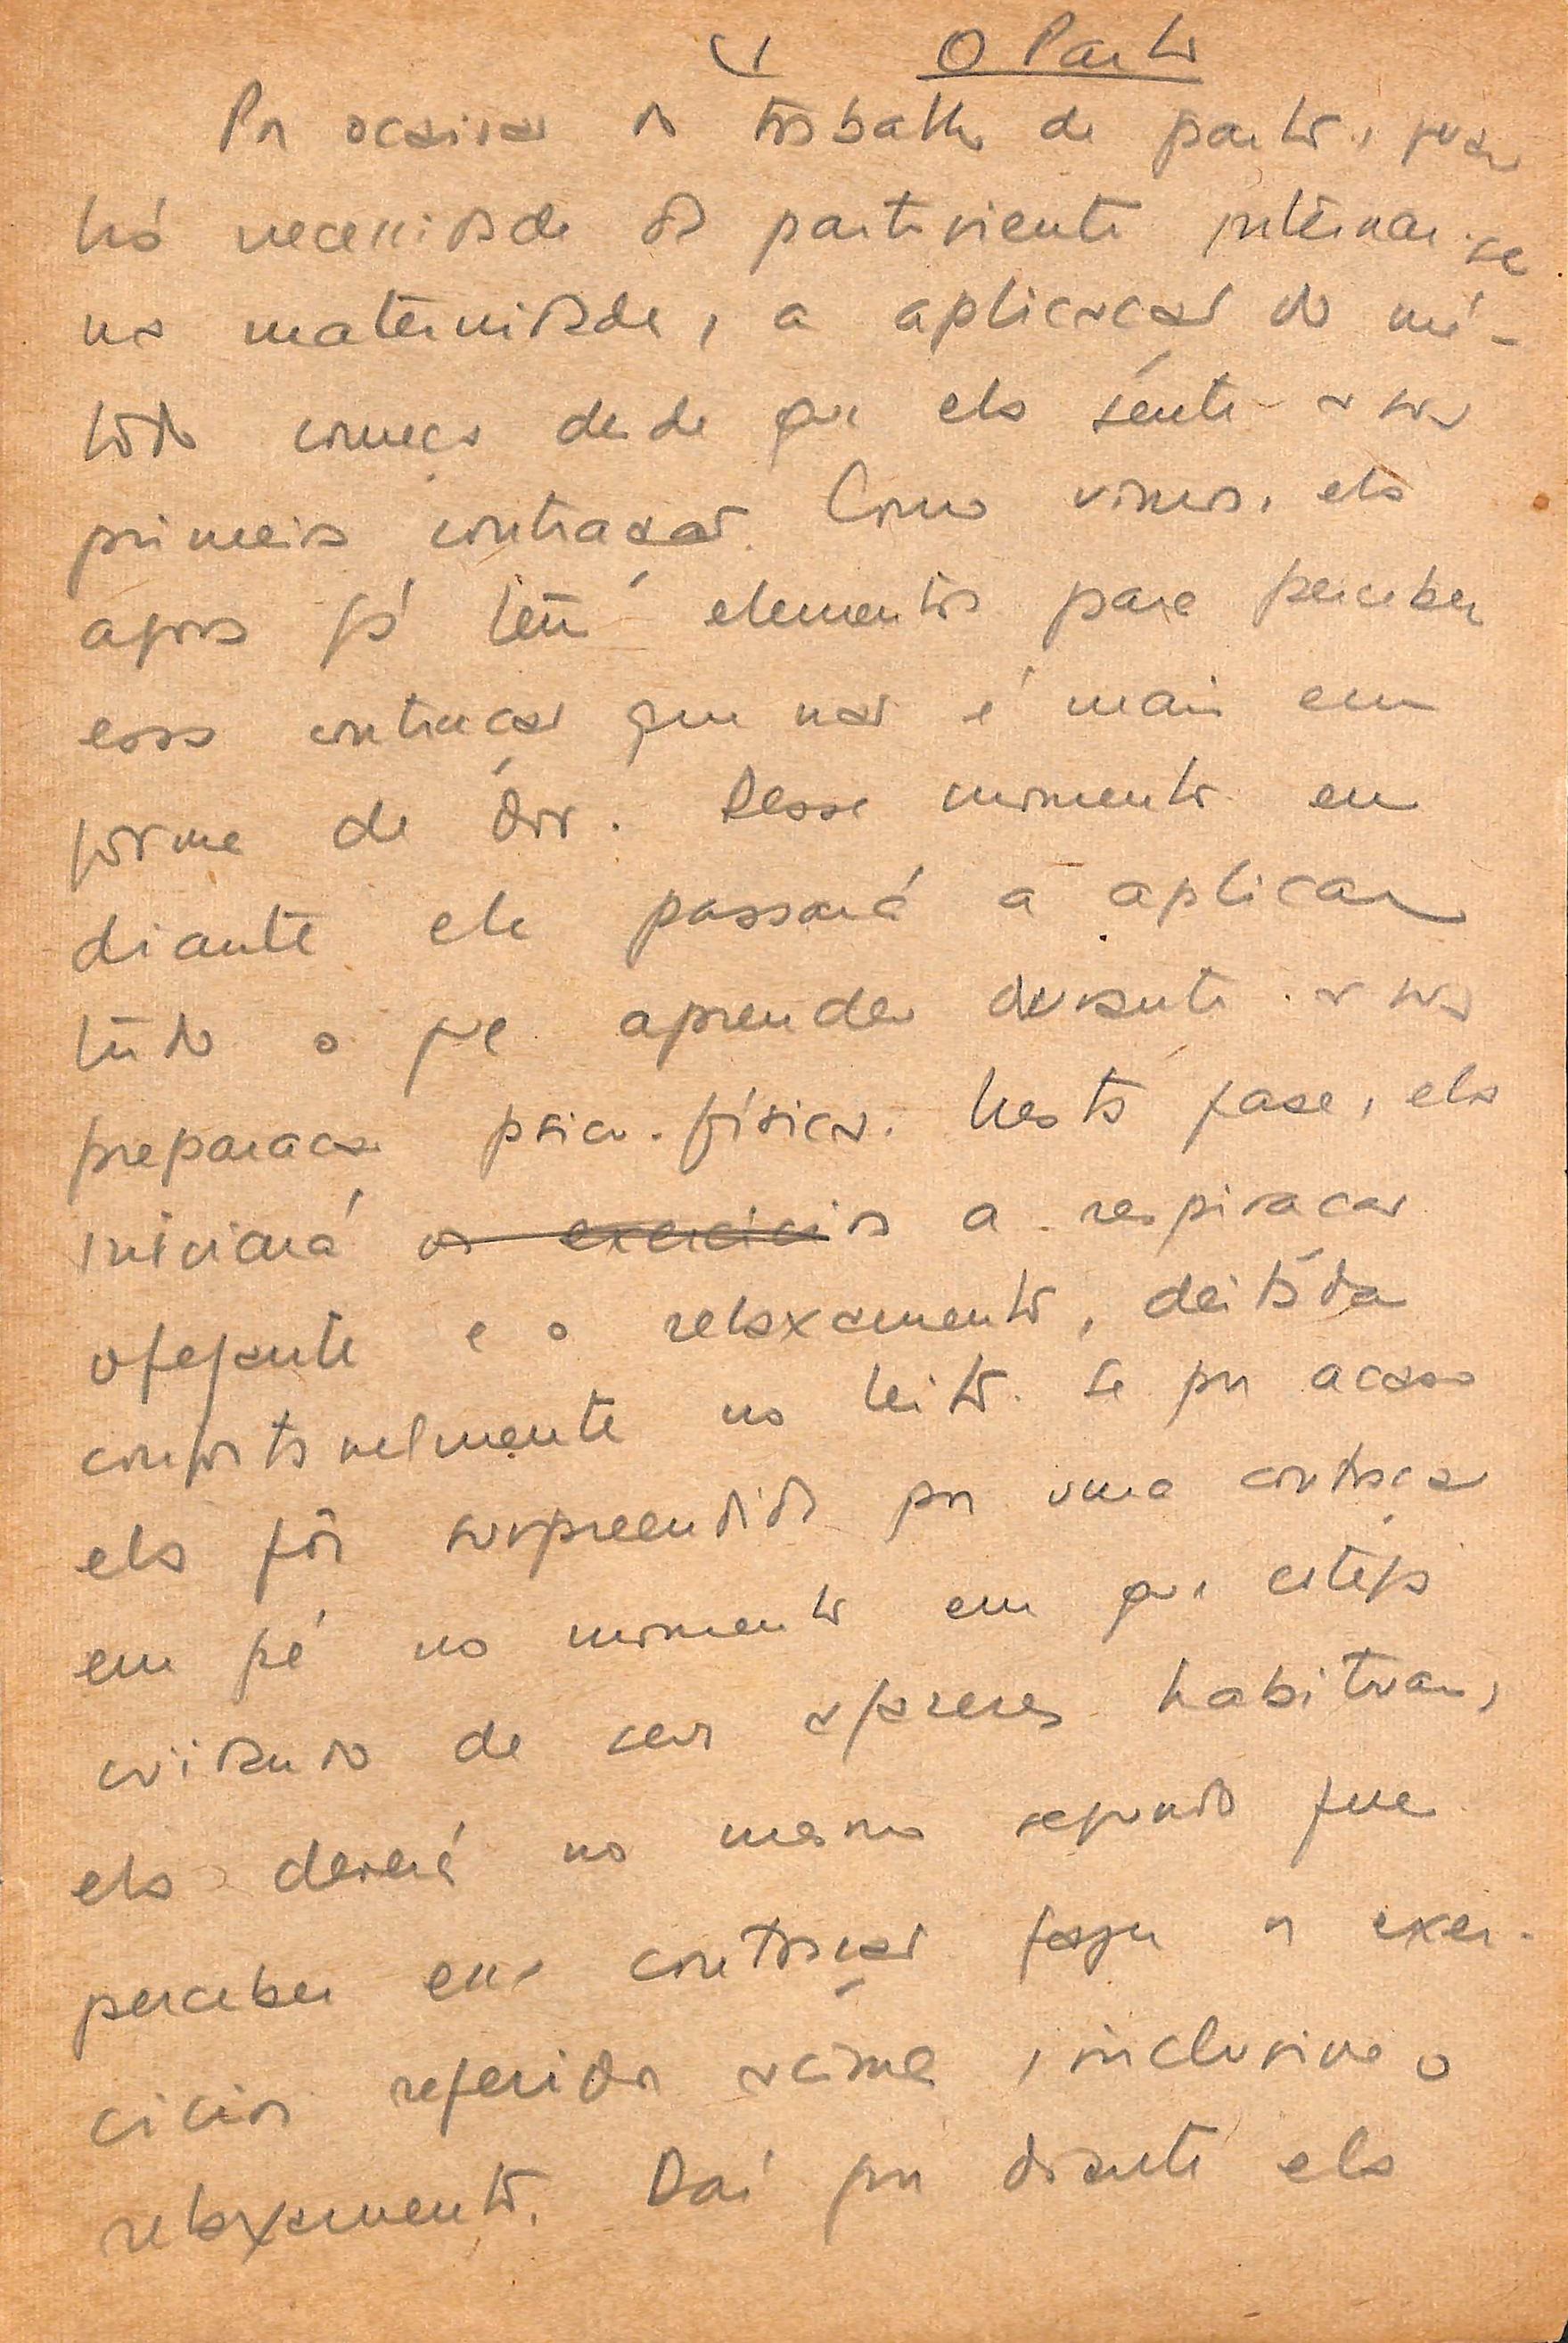 O Parto
Por ocasião do trabalho de parto, quando
há necessidade da parturiente internar-se
na maternidade, a aplicação do mé-
todo começa desde que ela sente a sua
primeira contração. Como vimos, ela
agora já tem elementos para perceber
essa contração que não é mais em
forma de dor. Desse momento em
diante ela passará a aplicar
tudo o que aprendeu durante a sua
preparação psico-física. Nesta fase, ela
iniciará os exercicios a respiração
ofegante e o relaxamento, deitada
confortavelmente no leito. Se por acaso
ela fôr surpreendida por uma contração
em pé no momento em que esteja
cuidando de seus afazeres habituais,
ela deverá no mesmo segundo que
perceber essa contração fazer os exer-
cicios referidos acima, inclusive o
relaxamento. Daí por diante ela